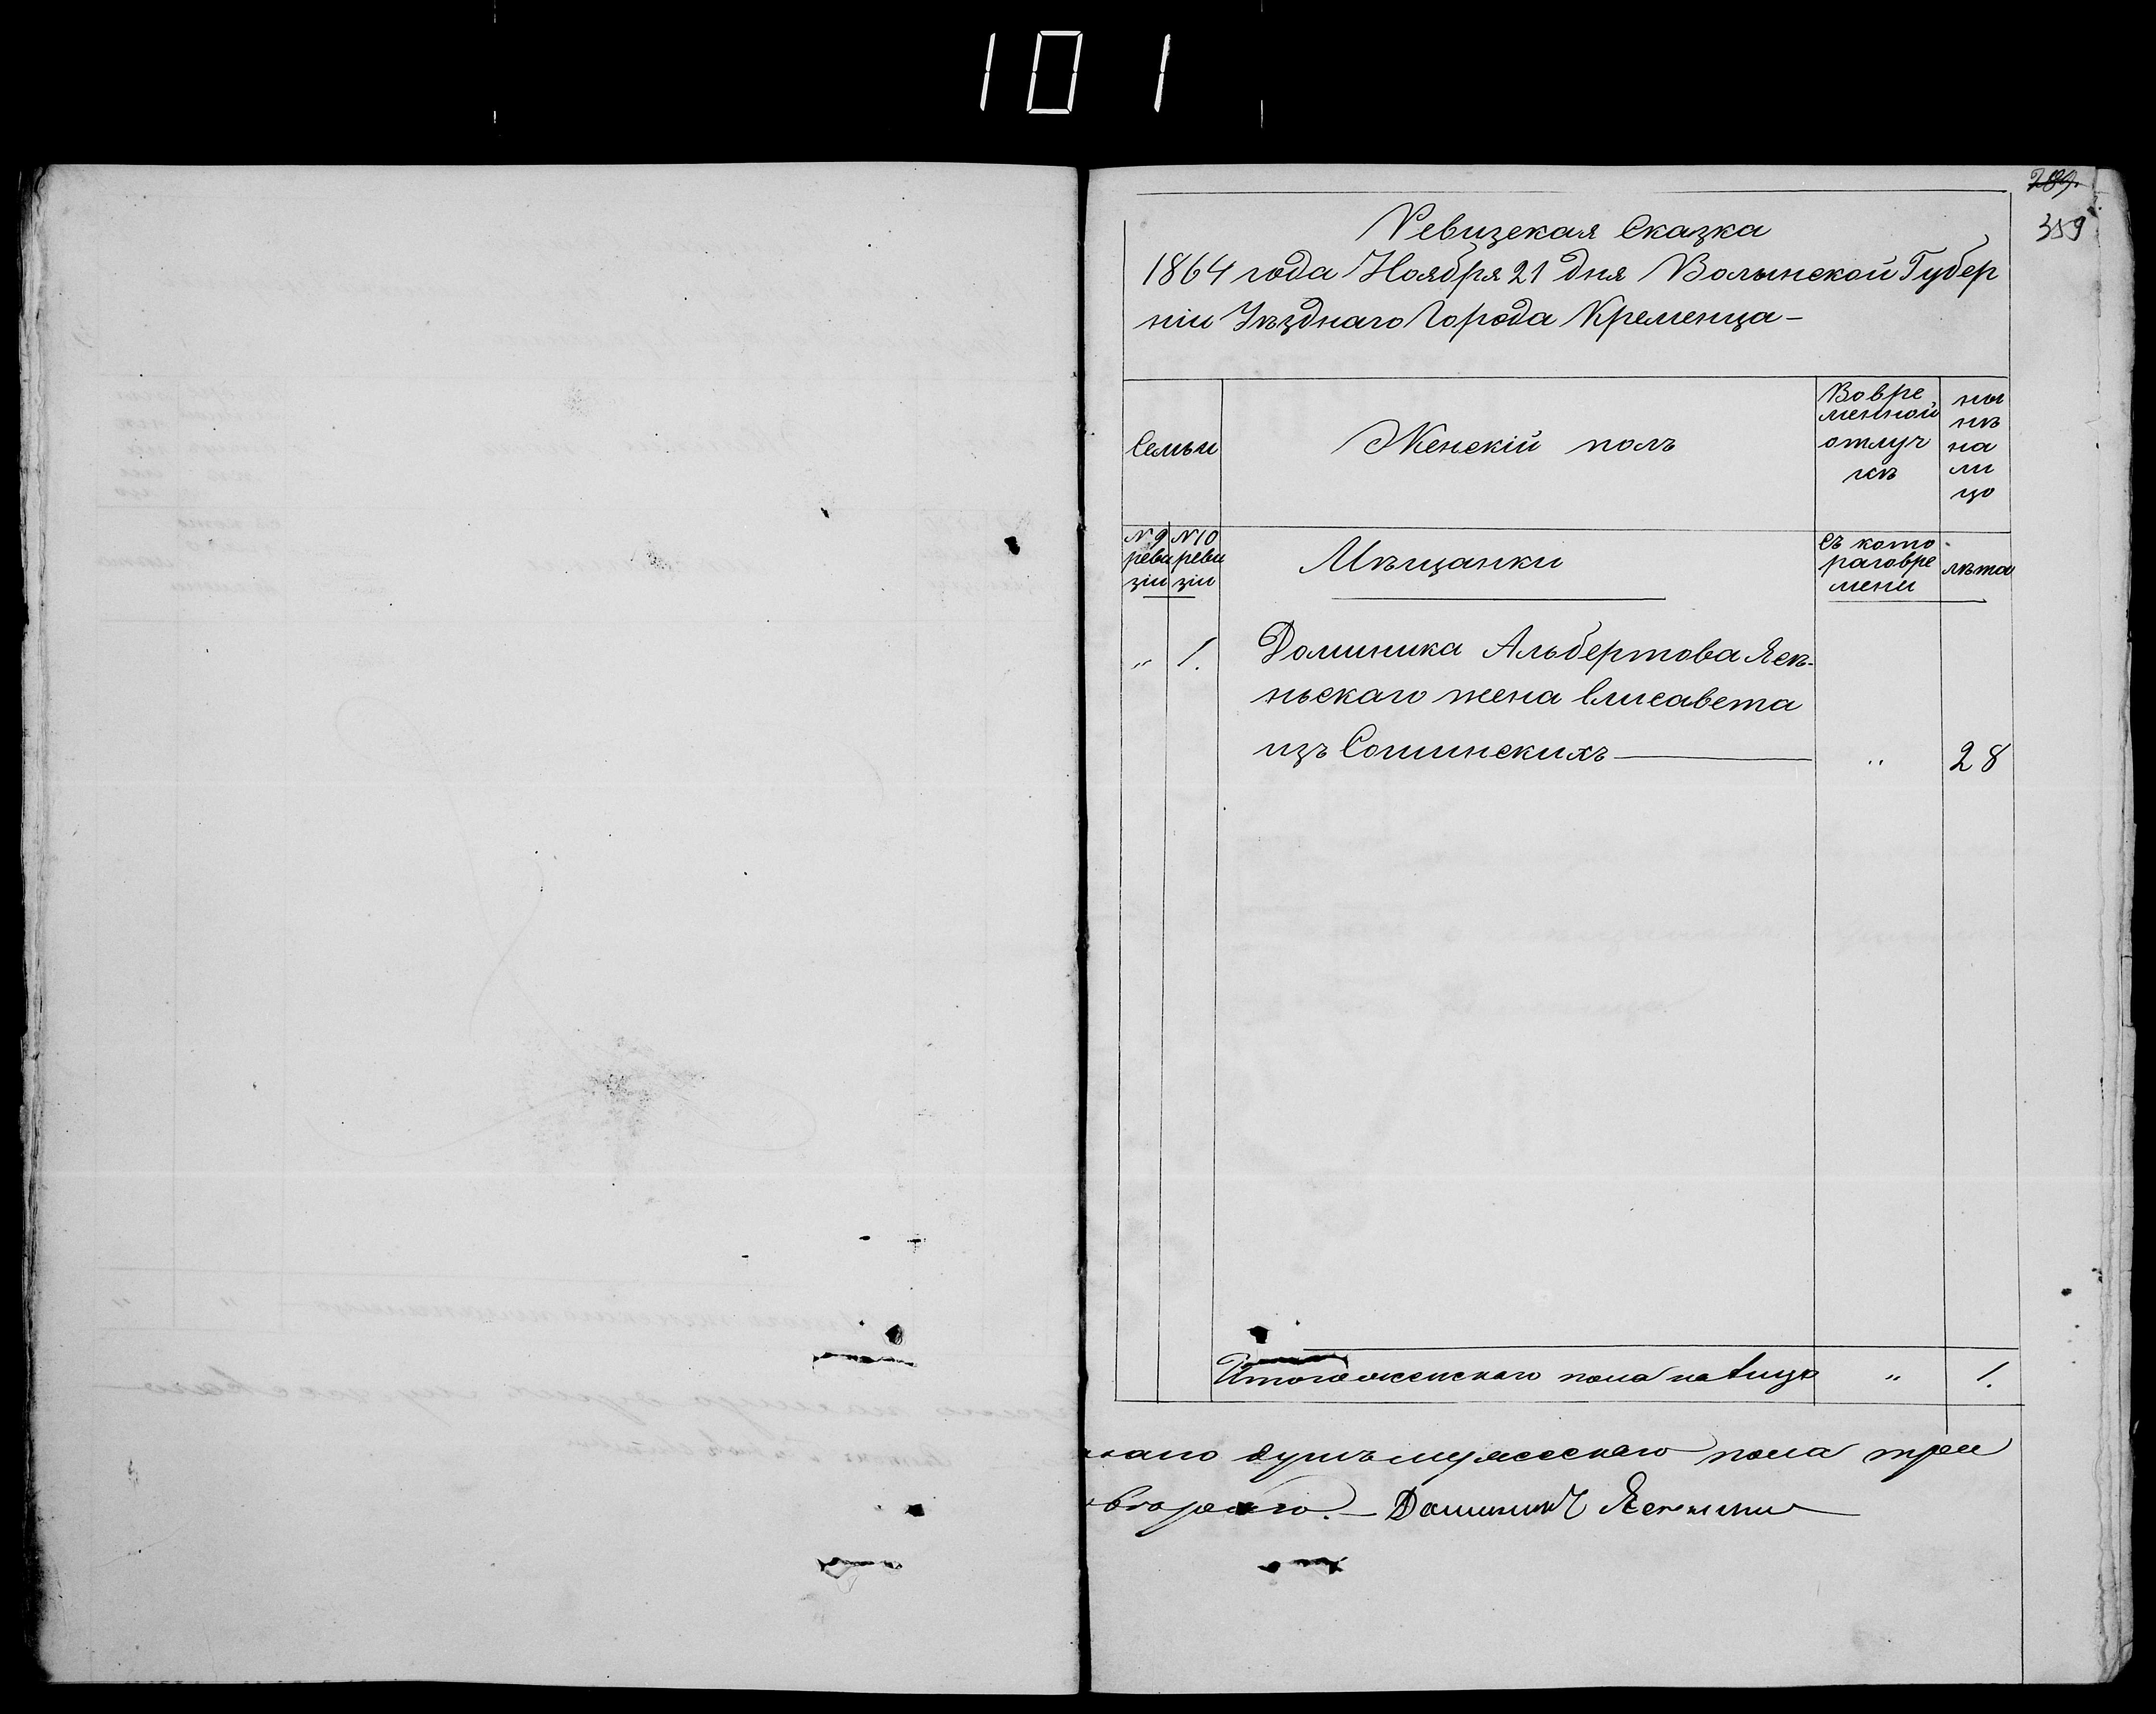 101
289.
359
Ревизская Сказка
1864 года Ноября 21 дня Волынской Губер
ніи Уѣзднаго Города Кременца-
Семьи
Женскій полъ
Во вре
менной
отлуч
кѣ
ны
нѣ
на
ли
цо
№ 9
реви
зіи
№ 10
реви
зіи
Мѣщанки
съ кото
раго вре
мени
лѣта
" 1. Доминика Альбертова Ясѣ-
ньскаго жена Елисавета
изъ Сошинскихъ " 28
Итого женскаго пола на лицо " 1.
душъ мужескаго пола три
Доминикъ